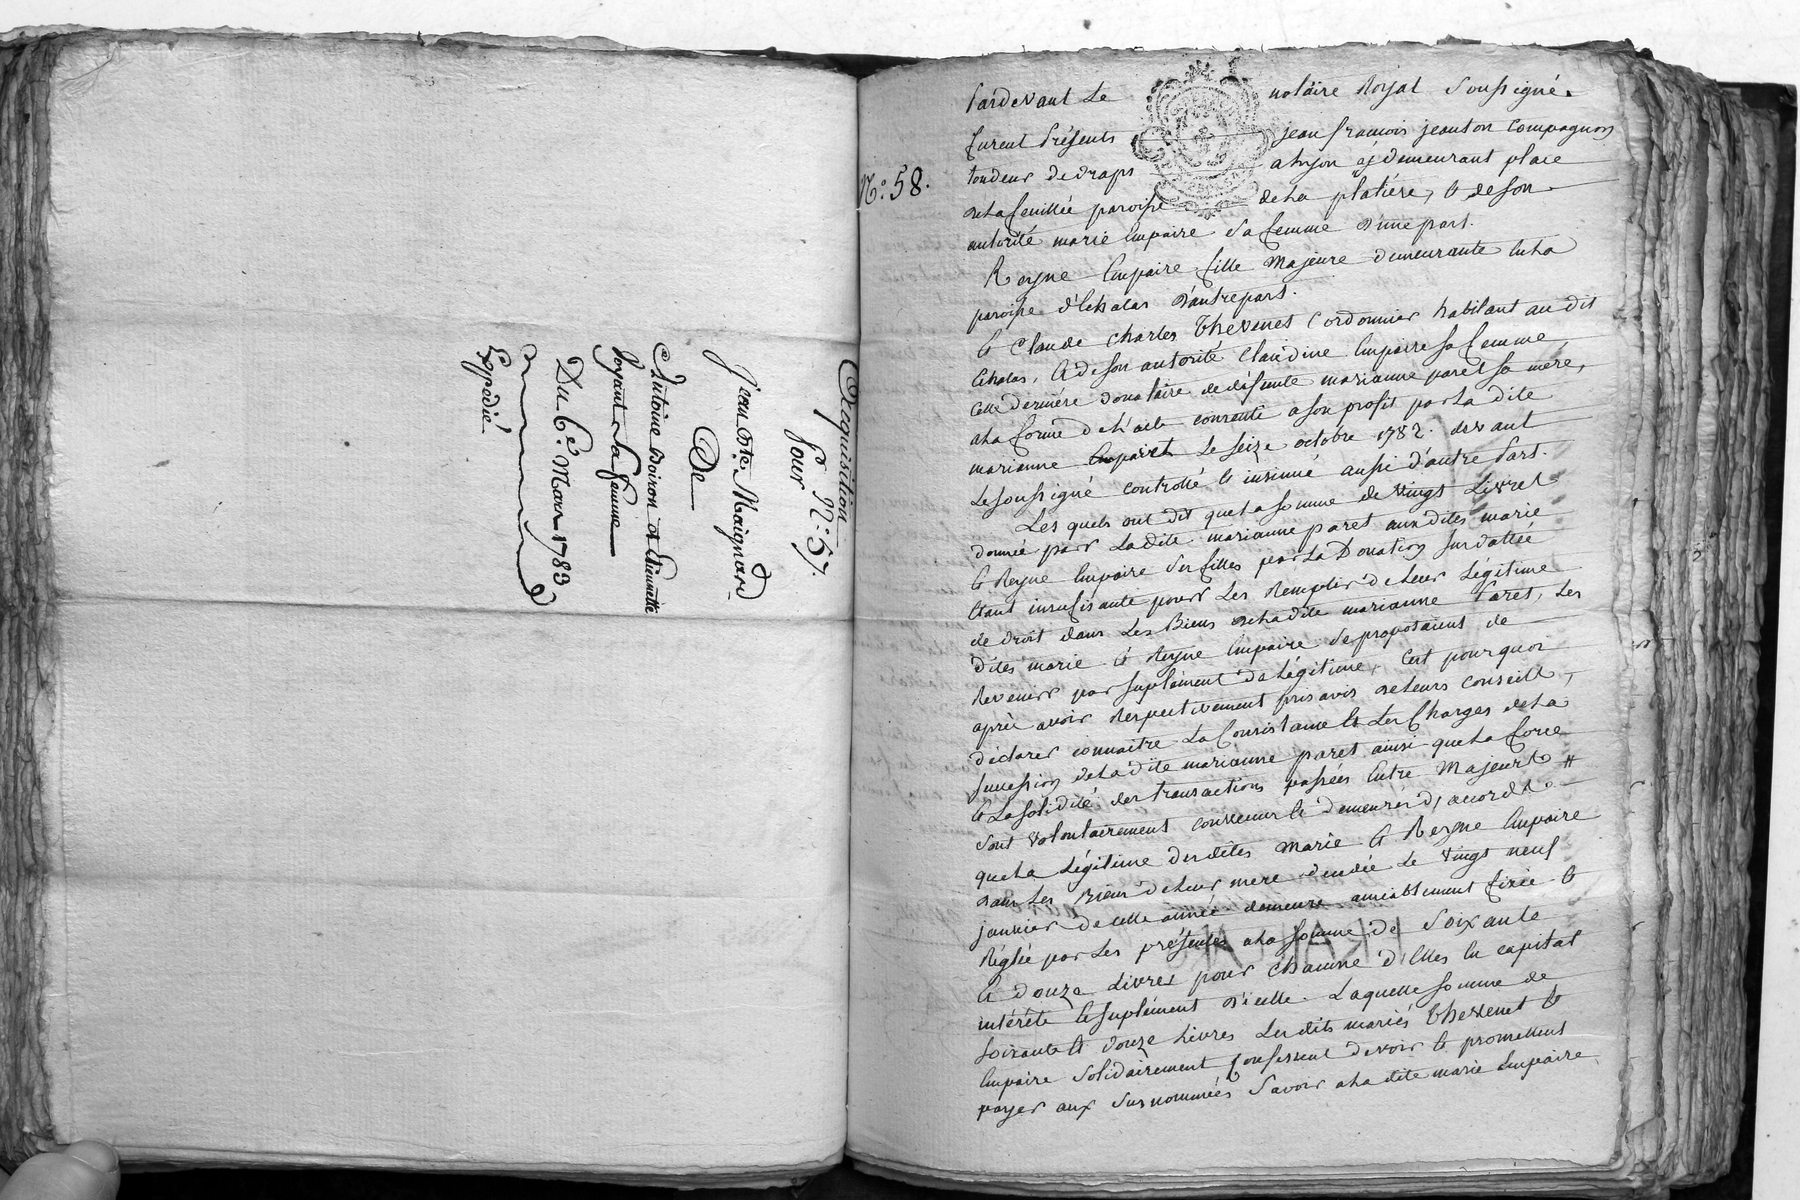 Acquisition
N.° 57.
Pour
Jean Bte. Maignard
De
Antoine Boiron et Pierrette
Joyant sa femme
Du 6e. Mars 1783
Expédié
N.° 58.
Pardevant Le notaire Royal Soussigné.
furent Présents jean françois jeanton Compagnon
tondeur de draps a lyon y demeurant place
de la feuillée paroisse de La platière, & de son
autorité marie Empaire sa femme d'une part.
Reyne Empaire fille Majeure demeurante en La
paroisse d'Echalas d'autre part.
& Claude Charles Thevenet Cordonnier habitant au dit
Echalas, & de son autorité Claudine Empaire sa femme
cette dernière donataire de défunte marianne paret sa mère,
a La forme de L'acte consenti a son profit par La dite
marianne Le seize octobre 1782. devant
Le soussigné controllé & insinué aussi d'autre Part.
Les quels ont dit que La somme de vingt Livres
donnée par La dite marianne paret aux dites marie
& Reyne Empaire ses filles par La Donation sus datée
Etant insufisante pour Les Remplir de Leur Légitime
de droit dans Les Biens de La dite marianne Paret, Les
dites marie & Reyne Empaire se proposaient de
Revenir par suplément de Légitime, C'est pourquoi
après avoir Respectivement pris avis de Leurs conseils,
déclaré connaitre La Consistance & Les Charges de La
succession de La dite marianne paret ainsi que La force
& La solidité des transactions passées Entre Majeurs #
sont volontairement convenus & demeurés d'accord
que La Légitime des dites Marie & Reyne Empaire
dans Les Biens de Leur mere décédée Le vingt neuf
janvier de cette année demeure amiablement fixée &
Réglée par Les présentes a La somme de Soixante
& douze Livres pour chacune d'Elles En capital
intérêts & suplément d'icelle. Laquelle somme de
soixante & douze Livres Les dits mariés Thevenet &
Empaire Solidairement Confessent devoir & promettent
payer aux susnommées Savoir a La dite marie Empaire